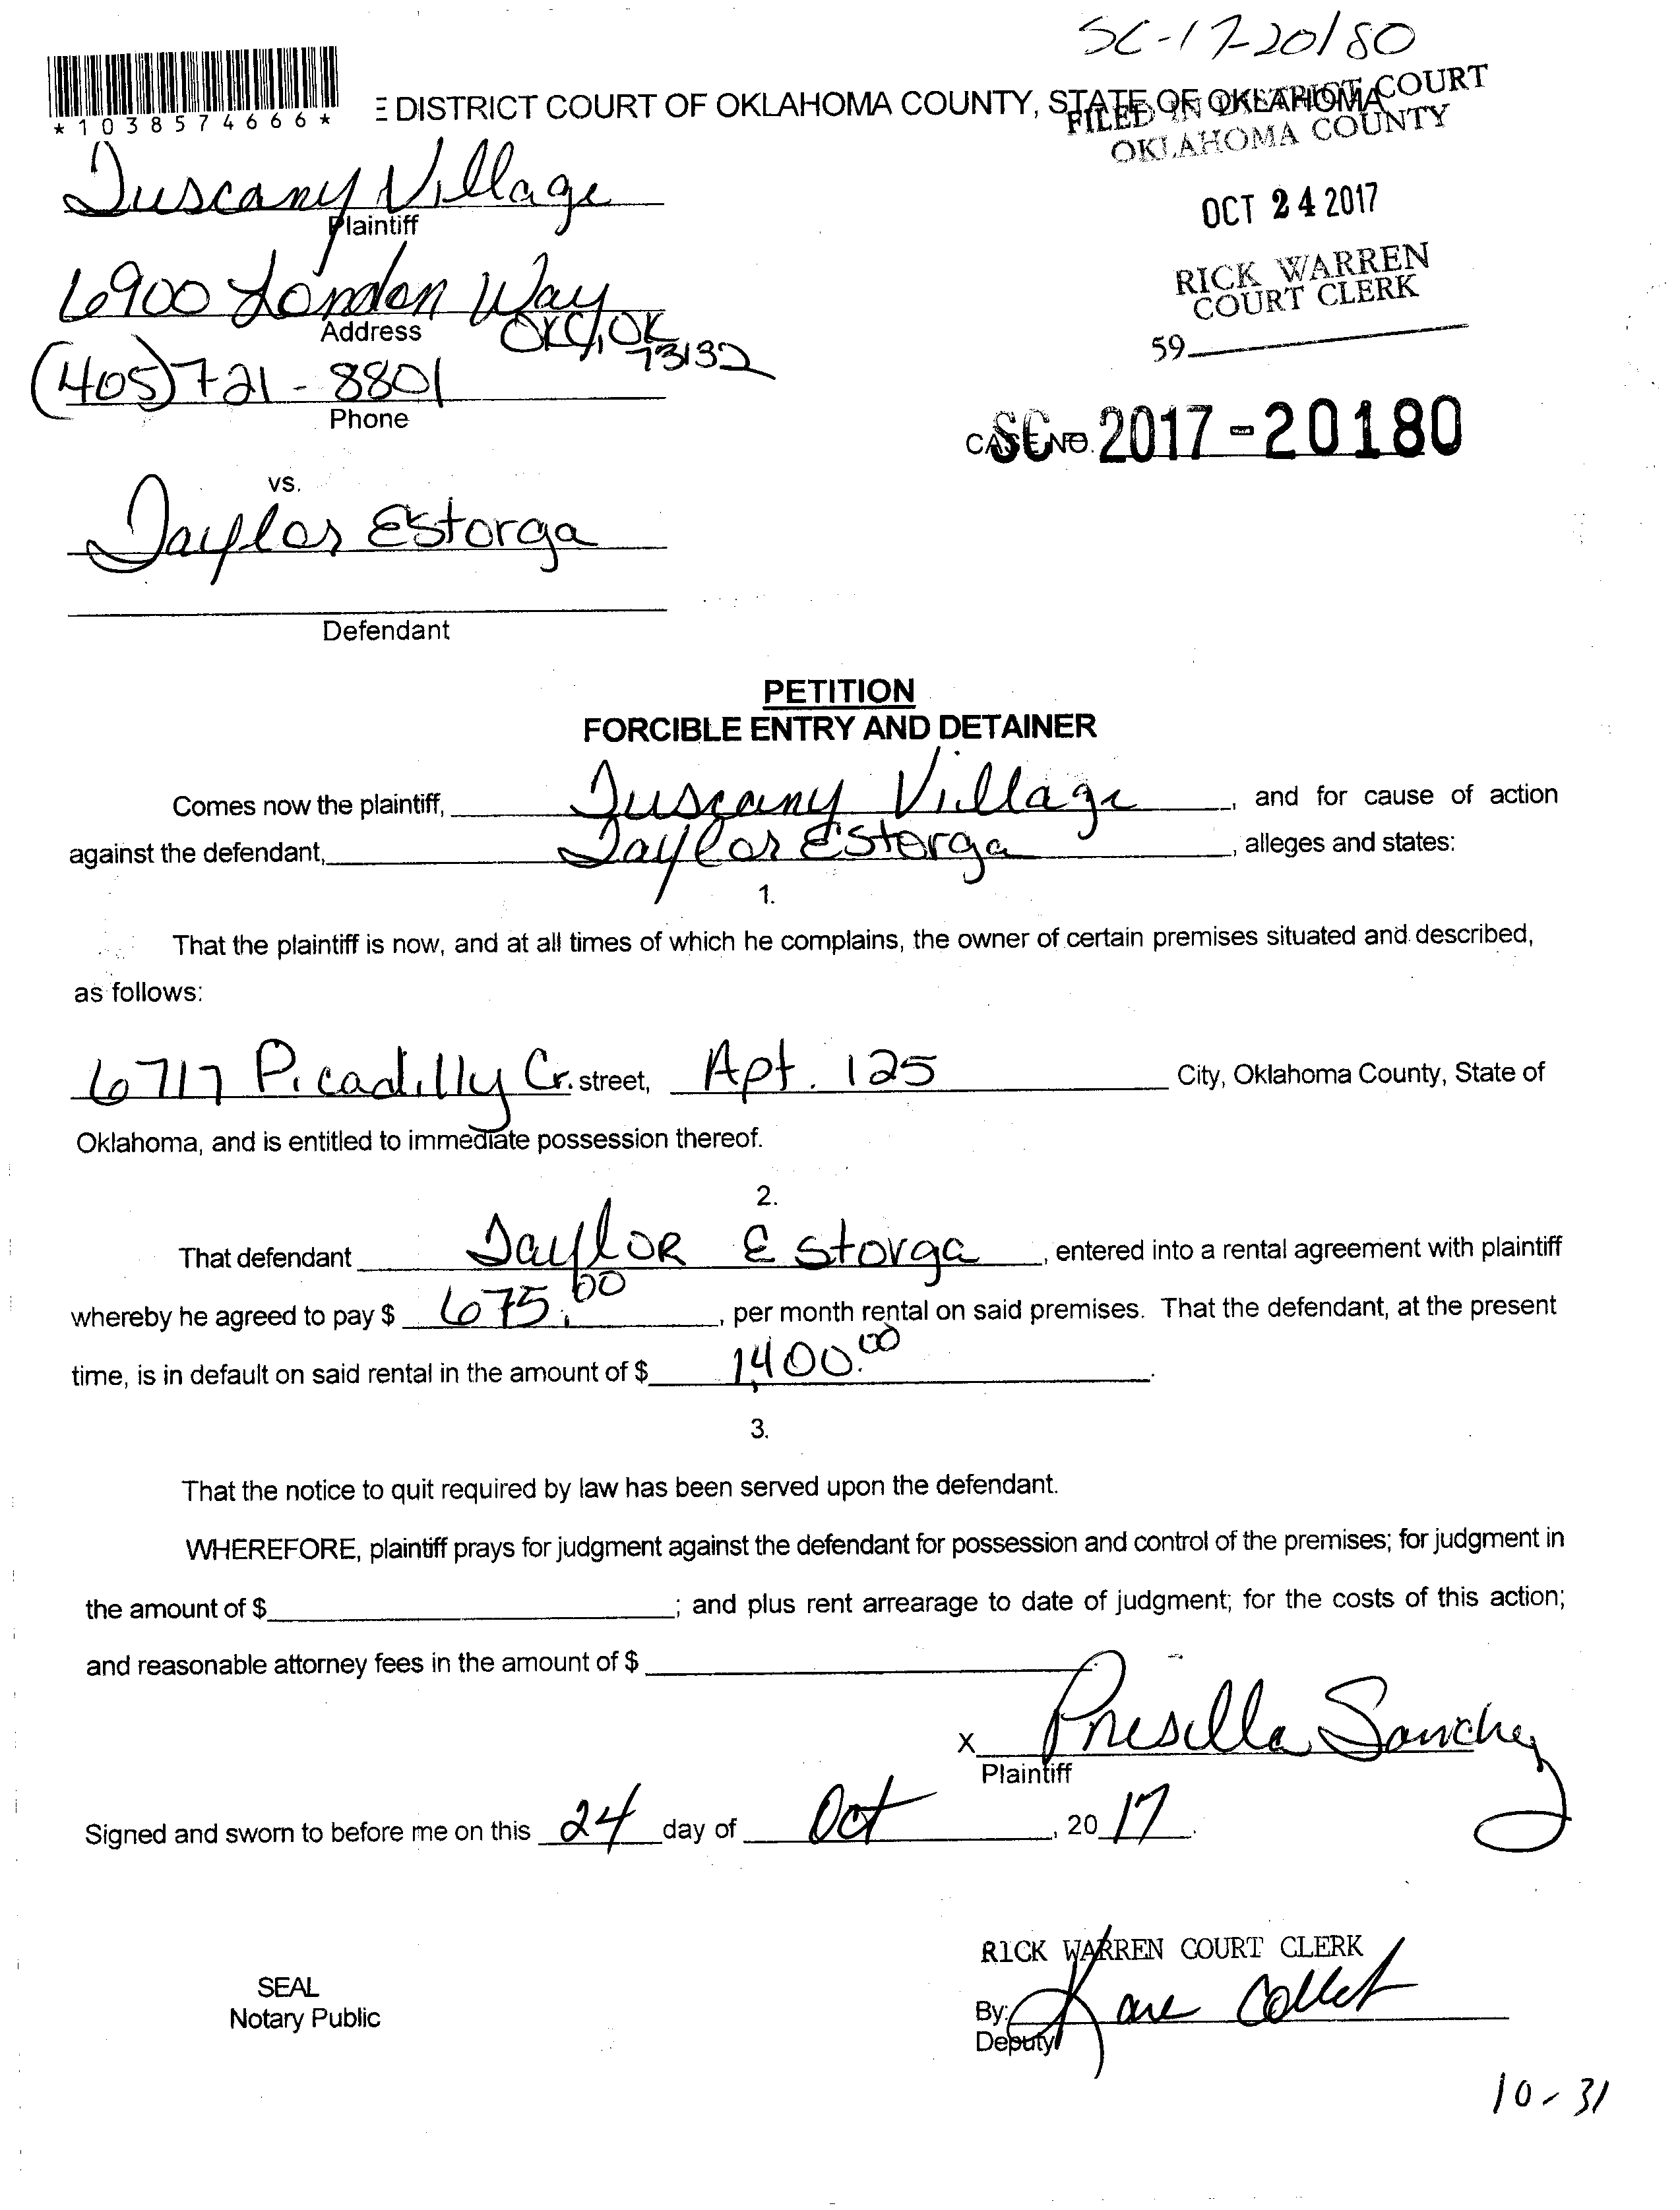 SC-17-20180
*1038574666*
E DISTRICT COURT OF OKLAHOMA COUNTY, STATE OF OKLAHOMA
FILED IN DISTRICT COURT
OKLAHOMA COUNTY
Tuscany Village
Plaintiff
OCT 24 2017
6900 London Way
Address
OKC, OK
73132
RICK WARREN
COURT CLERK
59
(405) 721-8801
Phone
CASE NO.
SC-2017-20180
vs.
Taylor Estorga
Defendant
PETITION
FORCIBLE ENTRY AND DETAINER
Comes now the plaintiff, Tuscany Village, and for cause of action
against the defendant, Taylor Estorga, alleges and states:
1.
That the plaintiff is now, and at all times of which he complains, the owner of certain premises situated and described,
as follows:
6717 Picadilly Cr. street, Apt. 125 City, Oklahoma County, State of
Oklahoma, and is entitled to immediate possession thereof.
2.
That defendant Taylor Estorga, entered into a rental agreement with plaintiff
whereby he agreed to pay $ 675.00, per month rental on said premises. That the defendant, at the present
time, is in default on said rental in the amount of $ 1,400.00.
3.
That the notice to quit required by law has been served upon the defendant.
WHEREFORE, plaintiff prays for judgment against the defendant for possession and control of the premises; for judgment in
the amount of $ ; and plus rent arrearage to date of judgment; for the costs of this action;
and reasonable attorney fees in the amount of $
X Prisilla Sanchez
Plaintiff
Signed and sworn to before me on this 24 day of Oct, 2017.
RICK WARREN COURT CLERK
SEAL
Notary Public
By:
Deputy
10-31